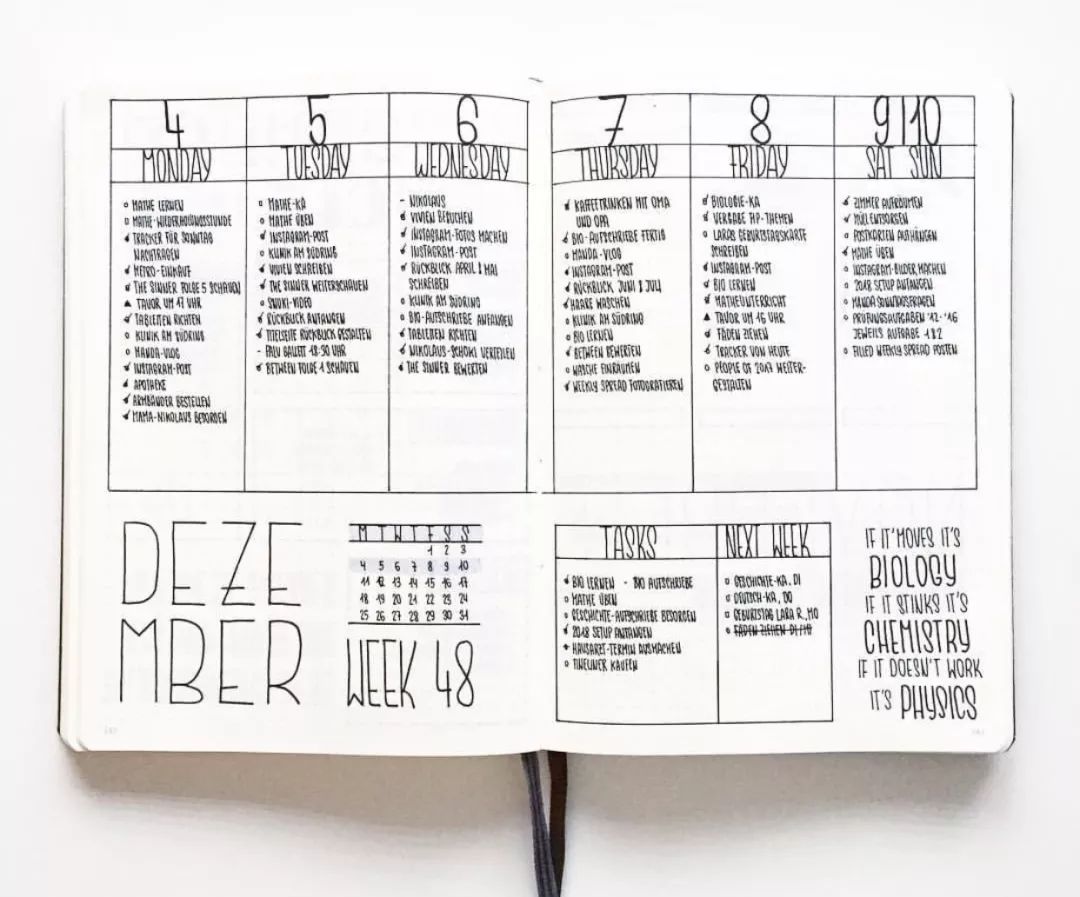 4
MONDAY
MATHE LERNEN
MATHE-WIEDERHOLUNGSSTUNDE
TRACKER FÜR SONNTAG
NACHTRAGEN
METRO-EINKAUF
THE SINNER FOLGE 5 SCHAUEN
TAVOR UM 17 UHR
TABLETTEN RICHTEN
KLINIK AM SÜDRING
MANDA-VLOG
INSTAGRAM-POST
APOTHEKE
ARMBÄNDER BESTELLEN
MAMA-NIKOLAUS BESORGEN
5
TUESDAY
MATHE-KA
MATHE ÜBEN
INSTAGRAM-POST
KLINIK AM SÜDRING
VIVIEN SCHREIBEN
THE SINNER WEITERSCHAUEN
SNUKI-VIDEO
RÜCKBLICK ANFANGEN
TITELSEITE RÜCKBLICK GESTALTEN
- BALLETT 18:30 UHR
BETWEEN FOLGE 1 SCHAUEN
6
WEDNESDAY
- NIKOLAUS
VIVIEN BESUCHEN
INSTAGRAM-FOTOS MACHEN
INSTAGRAM-POST
RÜCKBLICK APRIL & MAI
SCHREIBEN
KLINIK AM SÜDRING
BIO-AUFSCHRIEBE ANFANGEN
TABLETTEN RICHTEN
NIKOLAUS-SCHOKI VERTEILEN
THE SINNER BEWERTEN
7
THURSDAY
KAFFEETRINKEN MIT OMA
UND OPA
BIO-AUFSCHRIEBE FERTIG
MANDA-VLOG
INSTAGRAM-POST
RÜCKBLICK JUNI & JULI
HAARE WASCHEN
KLINIK AM SÜDRING
BIO LERNEN
BETWEEN BEWERTEN
WÄSCHE EINRÄUMEN
WEEKLY SPREAD FOTOGRAFIEREN
8
FRIDAY
BIOLOGIE-KA
VERGABE FIP-THEMEN
LARAS GEBURTSTAGSKARTE
SCHREIBEN
INSTAGRAM-POST
BIO LERNEN
MATHEUNTERRICHT
TAVOR UM 16 UHR
FÄDEN ZIEHEN
TRACKER VON HEUTE
PEOPLE OF 2017 WEITER-
GESTALTEN
9|10
SAT SUN
ZIMMER AUFRÄUMEN
MÜLL ENTSORGEN
POSTKARTEN AUFHÄNGEN
MATHE ÜBEN
INSTAGRAM-BILDER MACHEN
2018 SETUP ANFANGEN
MANDA SONNTAGSFRAGEN
PRÜFUNGSAUFGABEN '12-'16
JEWEILS AUFGABE 1&2
FILLED WEEKLY SPREAD POSTEN
DEZE
MBER
M T W T F S S
1 2 3
4 5 6 7 8 9 10
11 12 13 14 15 16 17
18 19 20 21 22 23 24
25 26 27 28 29 30 31
WEEK 48
TASKS
BIO LERNEN - BIO AUFSCHRIEBE
MATHE ÜBEN
GESCHICHTE-AUFSCHRIEBE BESORGEN
2018 SETUP ANFANGEN
HAUSARZT-TERMIN AUSMACHEN
FINELINER KAUFEN
NEXT WEEK
GESCHICHTE-KA, DI
DEUTSCH-KA, DO
GEBURTSTAG LARA R., MO
FÄDEN ZIEHEN DI/MO
IF IT MOVES IT'S
BIOLOGY
IF IT STINKS IT'S
CHEMISTRY
IF IT DOESN'T WORK
IT'S PHYSICS